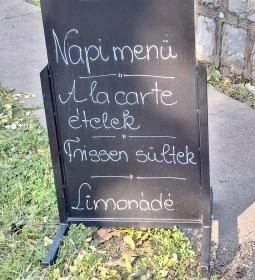 Napi menü
A la carte
ételek
Frissen sültek
Limonádé